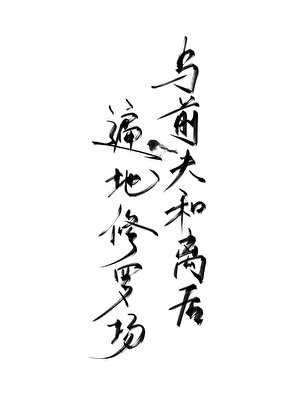 与前夫和离后
遍地修罗场